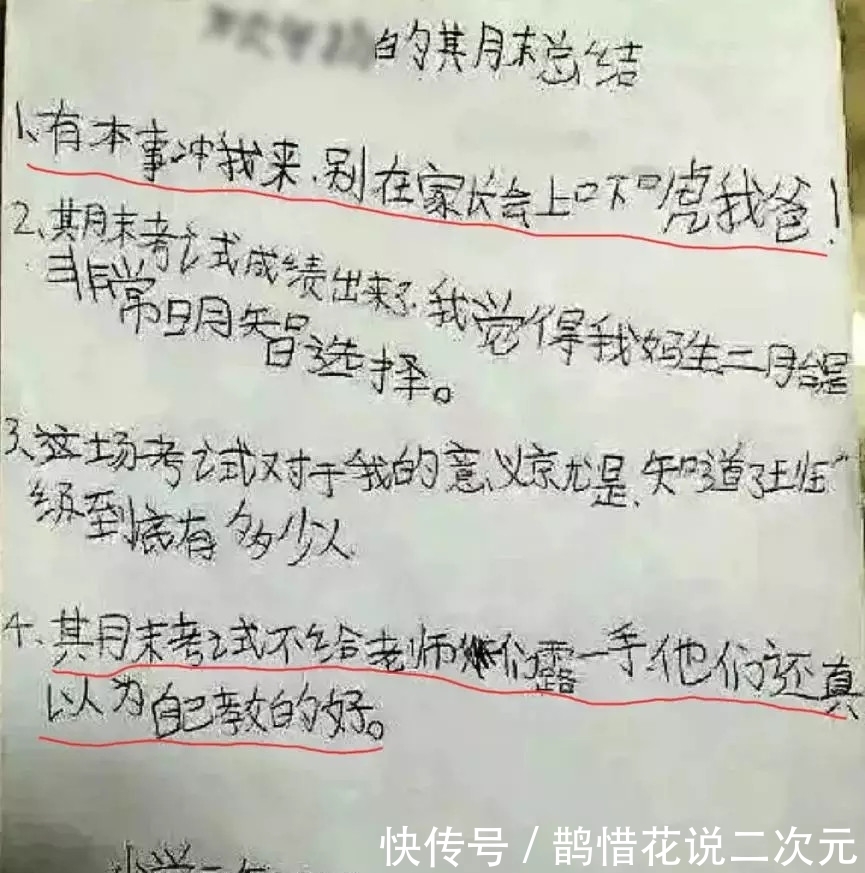 的期末总结
1、有本事冲我来,别在家长会上吓唬我爸!
2、期末考试成绩出来了,我觉得我妈生二胎是
非常明智选择。
3、这场考试对于我的意义就是,知道了班
级到底有多少人
4、期末考试不给老师们露一手他们还真
以为自己教的好。
快传号 / 鹊惜花说二次元